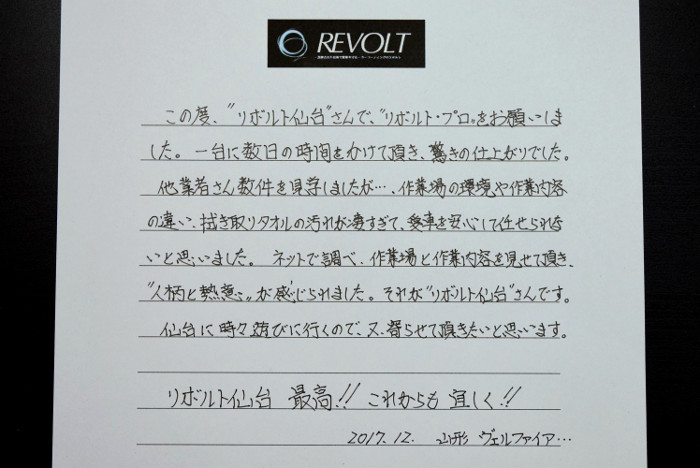 REVOLT
この度、"リボルト仙台"さんで、"リボルト・プロ"をお願いしま
した。一台に数日の時間をかけて頂き、驚きの仕上がりでした。
他業者さん数件を見学しましたが…、作業場の環境や作業内容
の違い、拭き取りタオルの汚れが凄すぎて、愛車を安心して任せられな
いと思いました。ネットで調べ、作業場と作業内容を見せて頂き、
"人柄と熱意"が感じられました。それが"リボルト仙台"さんです。
仙台に時々遊びに行くので、又、寄らせて頂きたいと思います。
リボルト仙台 最高!! これからも宜しく!!
2017.12. 山形 ヴェルファイア…